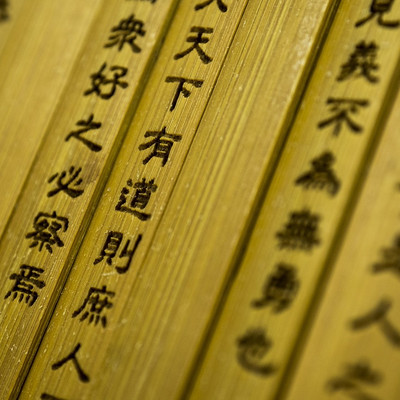 人之
見義不為無勇也
天下有道則庶人
衆好之必察焉